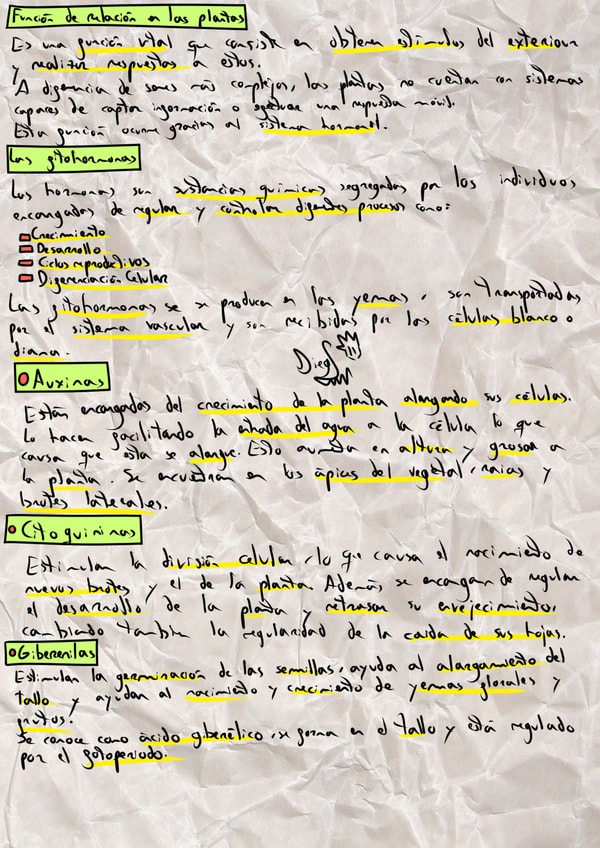 Función de relación en las plantas
Es una función vital que consiste en obtener estímulos del exterior
y realizar respuestas a estos.
A diferencia de seres más complejos, las plantas no cuentan con sistemas
capaces de captar información o efectuar una respuesta móvil.
Esta función ocurre gracias al sistema hormonal.
Las fitohormonas
Las hormonas son sustancias químicas segregadas por los individuos
encargadas de regular y controlar diferentes procesos como:
Crecimiento
Desarrollo
Ciclos reproductivos
Diferenciación Celular
Las fitohormonas se producen en las yemas, son transportadas
por el sistema vascular y son recibidas por las células blanco o
diana.
Auxinas
Están encargadas del crecimiento de la planta alargando sus células.
Lo hacen facilitando la entrada del agua a la célula lo que
causa que esta se alargue. Esto aumenta en altura y grosor a
la planta. Se encuentran en los ápices del vegetal, raices y
brotes laterales.
Citoquininas
Estimulan la división celular, lo que causa el nacimiento de
nuevos brotes y el de la planta. Además, se encargan de regular
el desarrollo de la planta y retrasar su envejecimiento,
cambiando también la regularidad de la caida de sus hojas.
Giberenilas
Estimulan la germinación de las semillas, ayuda al alargamiento del
tallo y ayudan al nacimiento y crecimiento de yemas florales y
frutos.
Se conoce como ácido giberélico, se forma en el tallo y está regulado
por el fotoperiodo.